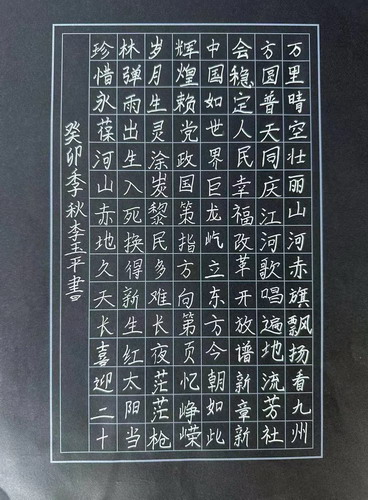 万里晴空壮丽山河赤旗飘扬看九州
方圆普天同庆江河歌唱遍地流芳社
会稳定人民幸福改革开放谱新章新
中国如世界巨龙屹立东方今朝如此
辉煌赖党政国策指方向第页忆峥嵘
岁月生灵涂炭黎民多难长夜茫茫枪
林弹雨出生入死换得新生红太阳当
珍惜永葆河山赤地久天长喜迎二十
癸卯季秋李玉平書